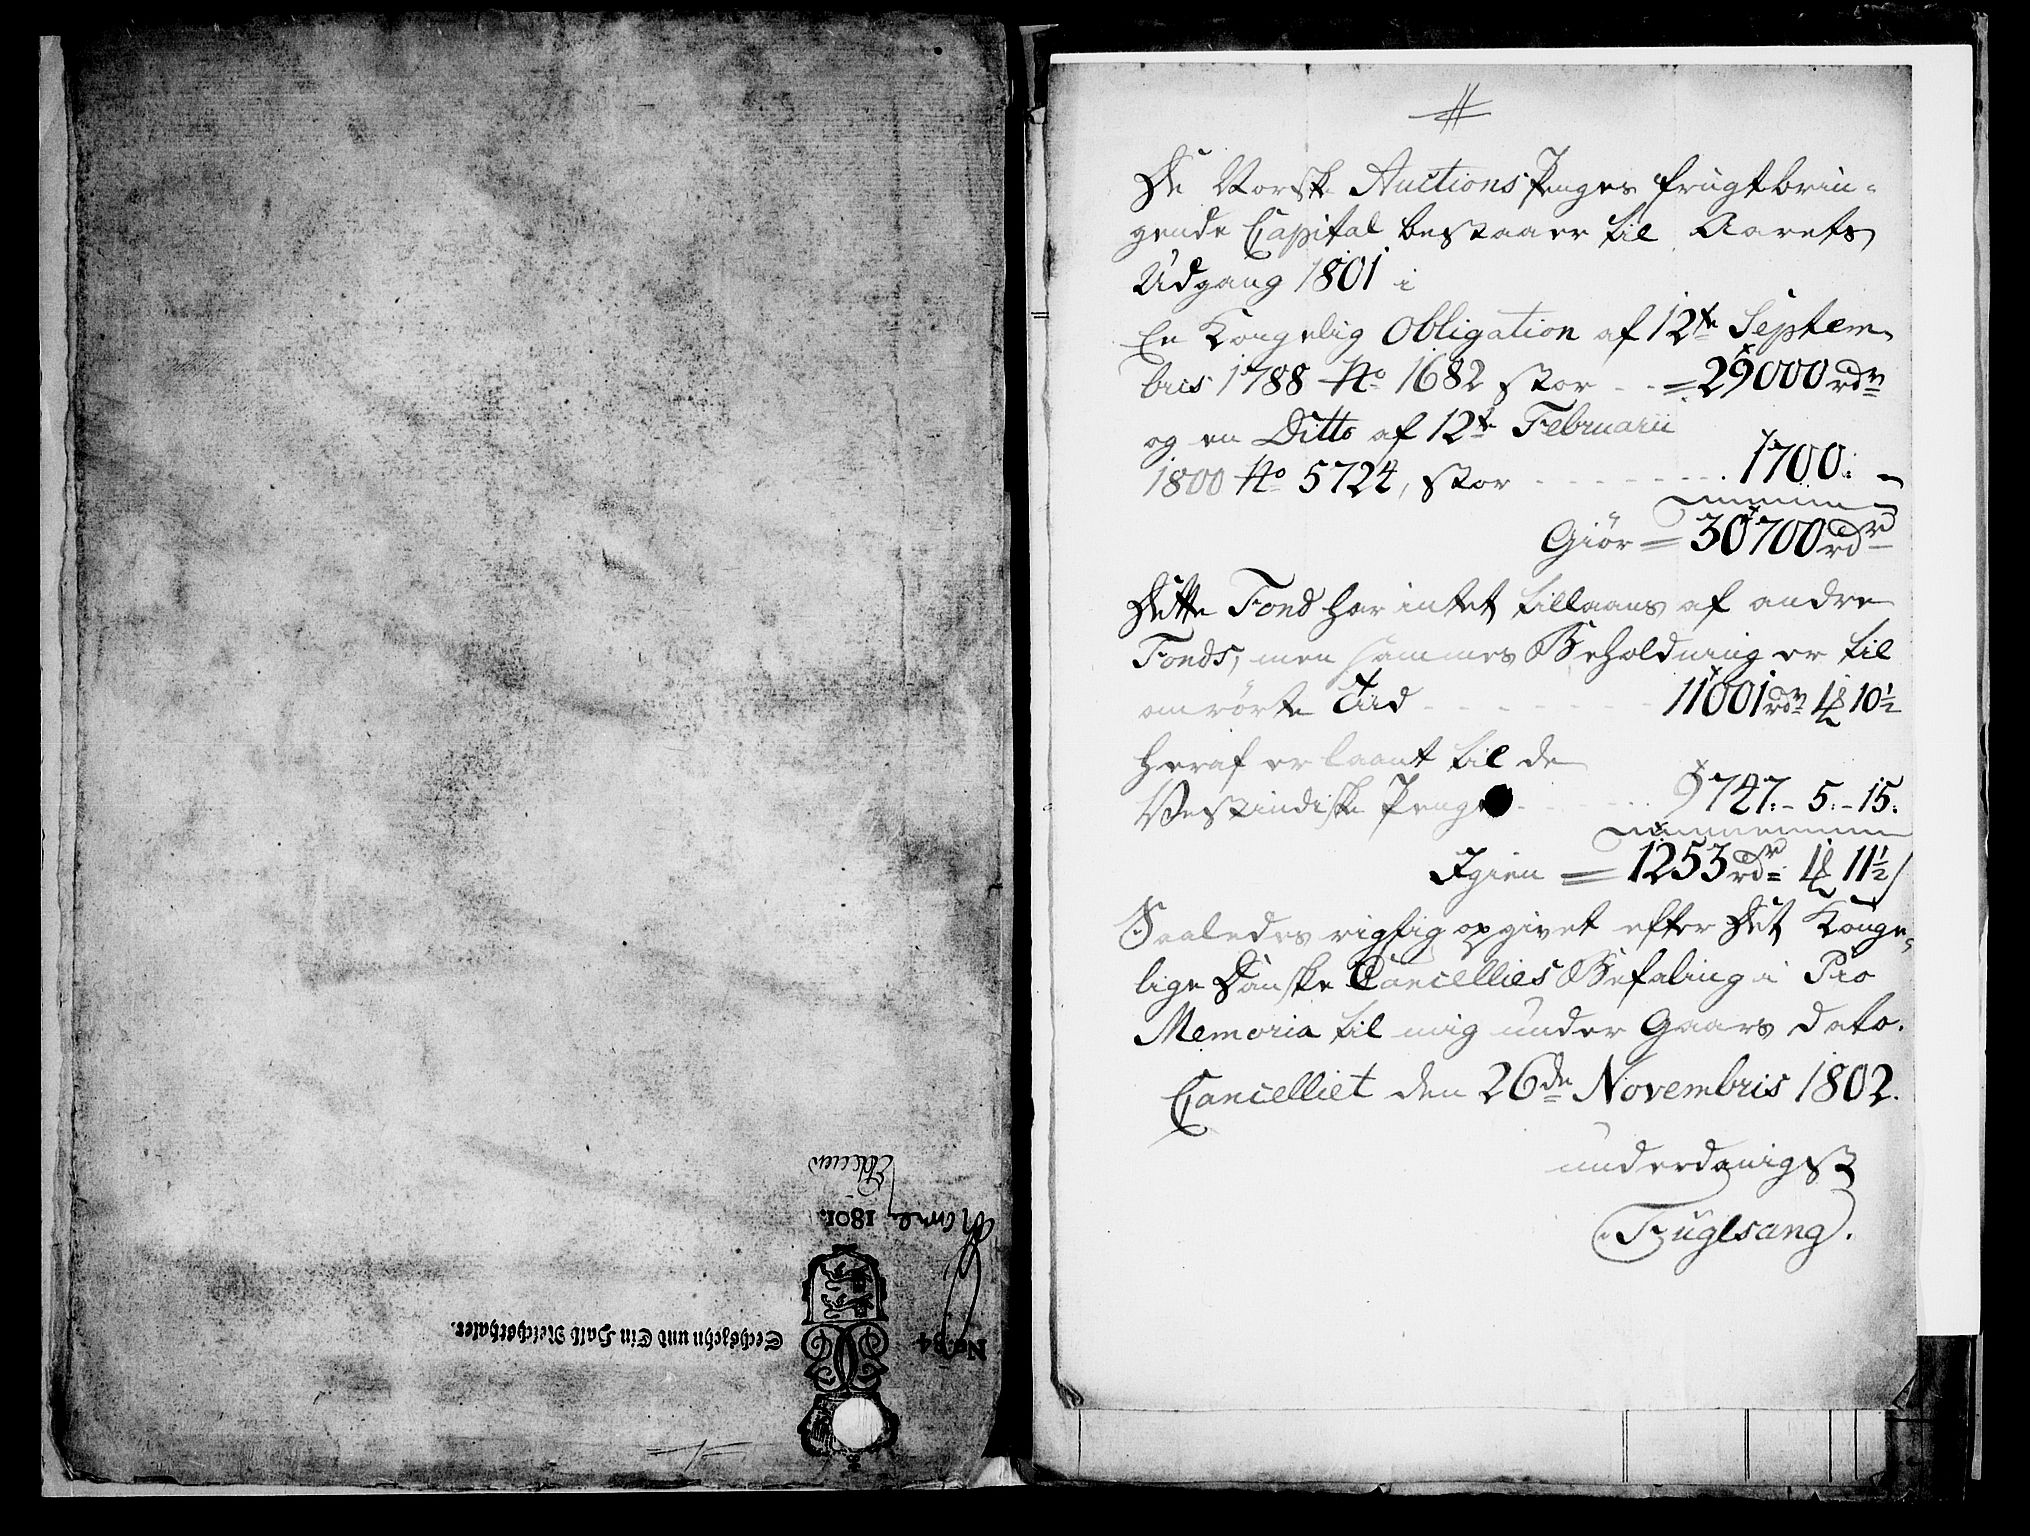 De Norske Auctions Penges frugtbrin-
gende Capital bestaaer til Aarets
Udgang 1801 i
En Kongelig Obligation af 12te Septem-
bris 1788 No 1682 stor - - = 29000 rdr
og en Ditto af 12te Februarii
1800 No 5724, stor - - - - - - - 1700: -
Giör = 30700 rdr
Dette Fond har intet tillaans af andre
Fonds, men sammes Beholdning er til
omrörte Tiid - - - - - - - 11001 rdr 4 10½
heraf er laant til de
Vestindiske Penge - - - - - 9747: - 5: - 15:
Igien = 1253 rdr 4 11½
Saaledes rigtig opgivet efter Det Konge-
lige Danske Cancellies Befaling i Pro
Memoria til mig under Gaars Dato.
Cancelliet den 26de Novembris 1802.
underdanigst
Fuglsang.
No. 34
Sechszehn und Ein Halb Reichsthaler.
1801.